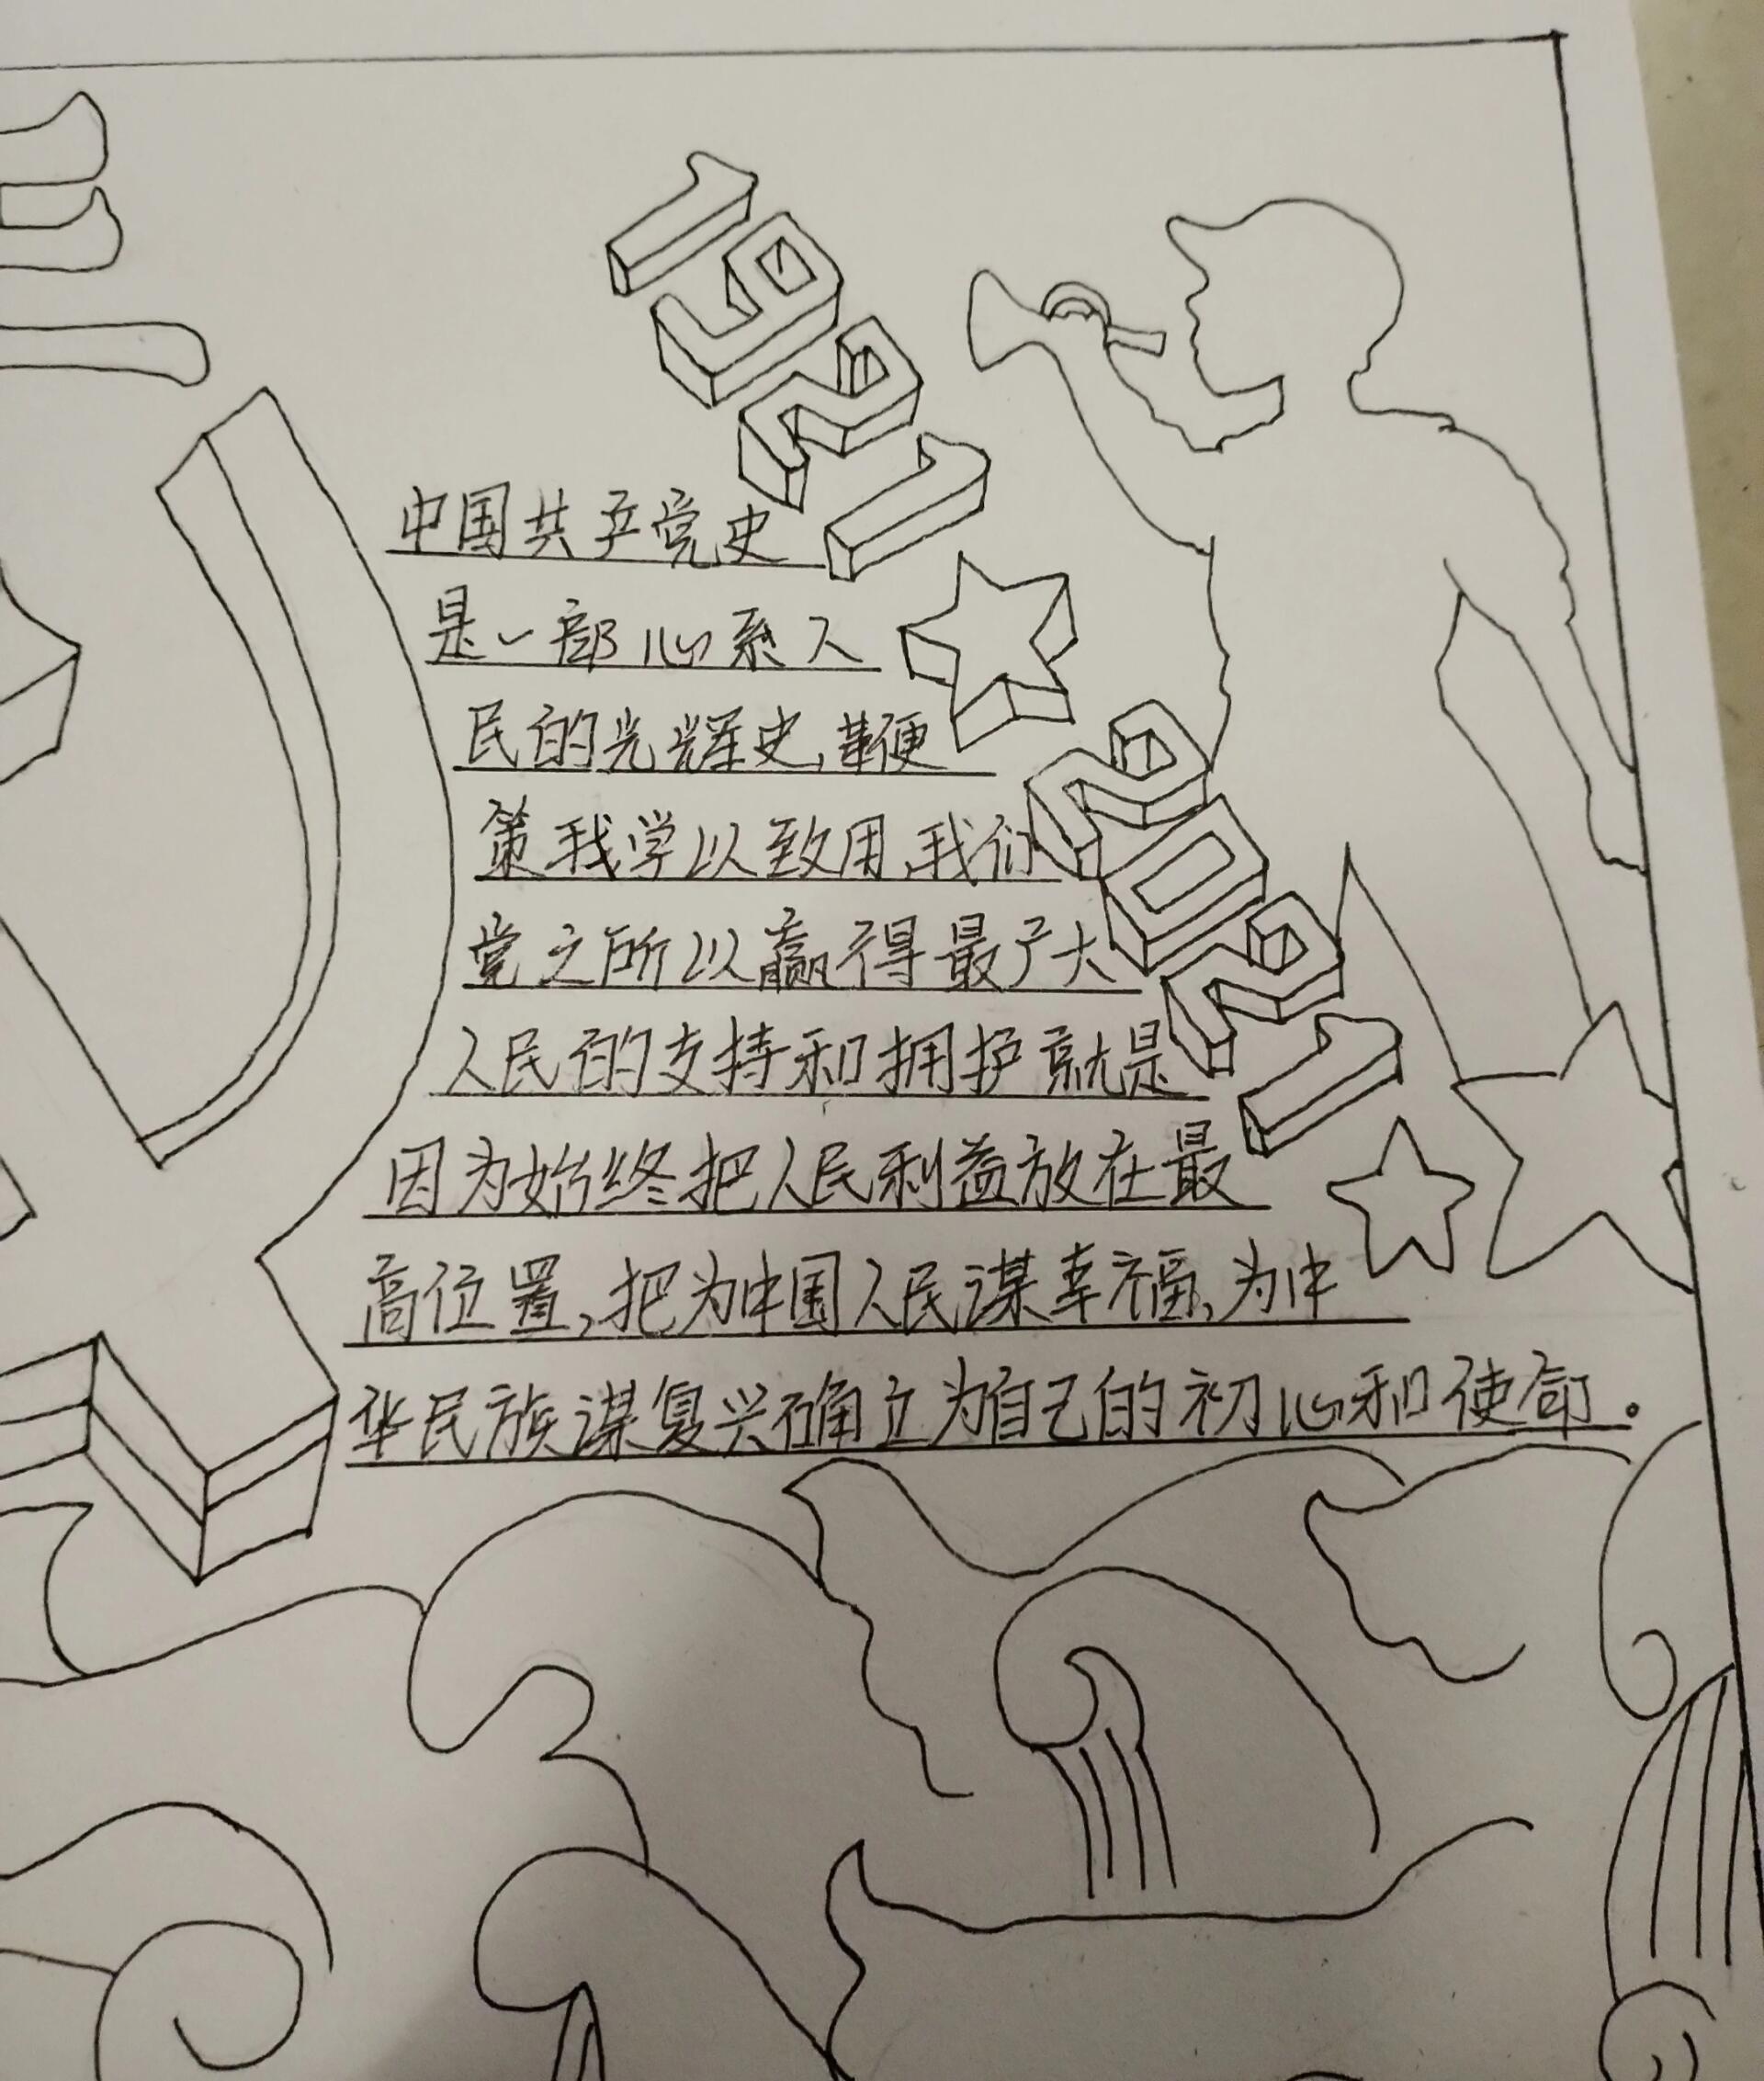 1921
2021
中国共产党史
是一部心系人
民的光辉史,鞭
策我学以致用,我们
党之所以赢得最广大
人民的支持和拥护就是
因为始终把人民利益放在最
高位置,把为中国人民谋幸福,为中
华民族谋复兴确立为自己的初心和使命。